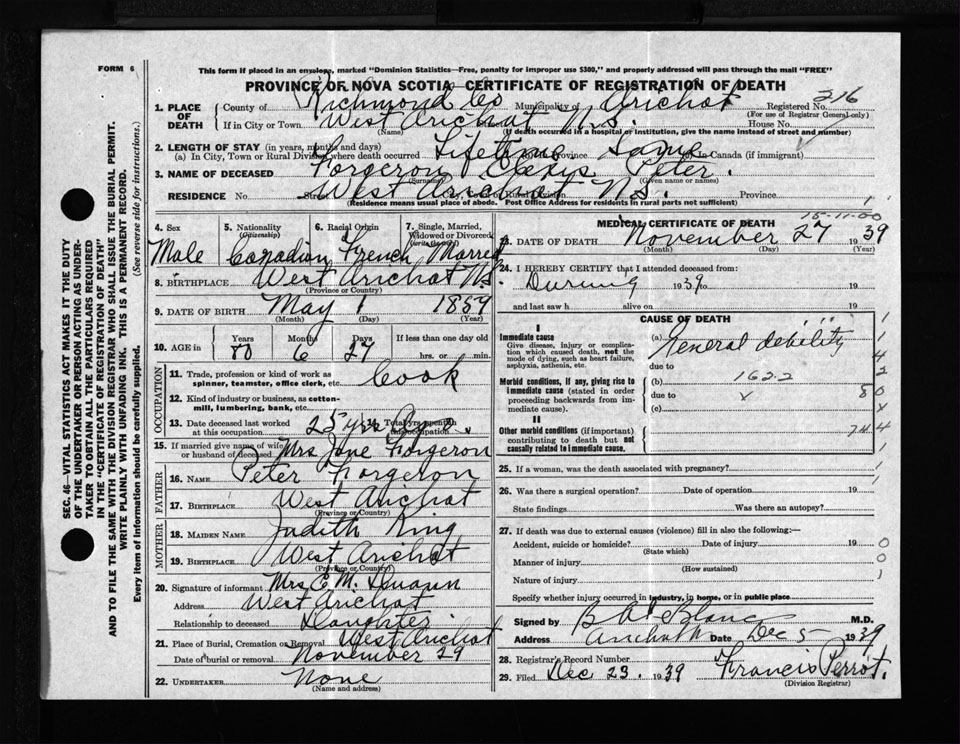 FORM 6
This form if placed in an envelope, marked "Dominion Statistics—Free, penalty for improper use $300," and properly addressed will pass through the mail "FREE"
PROVINCE OF NOVA SCOTIA—CERTIFICATE OF REGISTRATION OF DEATH
SEC. 46—VITAL STATISTICS ACT MAKES IT THE DUTY
OF THE UNDERTAKER OR PERSON ACTING AS UNDER-
TAKER TO OBTAIN ALL THE PARTICULARS REQUIRED
IN THE "CERTIFICATE OF REGISTRATION OF DEATH"
AND TO FILE THE SAME WITH THE DIVISION REGISTRAR WHO SHALL ISSUE THE BURIAL PERMIT.
WRITE PLAINLY WITH UNFADING INK. THIS IS A PERMANENT RECORD.
Every item of information should be carefully supplied. (See reverse side for instructions.)
1. PLACE OF DEATH County of Richmond Co Municipality of Arichat Registered No. 216
(For use of Registrar General only)
If in City or Town West Arichat N.S. House No.
(Name) (If death occurred in a hospital or institution, give the name instead of street and number)
2. LENGTH OF STAY (in years, months and days)
(a) In City, Town or Rural Division where death occurred Lifetime Province Same In Canada (if immigrant)
3. NAME OF DECEASED Forgeron Peter.
(Surname) (Given name or names)
RESIDENCE No. Street West Arichat N.S. Province
(Residence means usual place of abode. Post Office Address for residents in rural parts not sufficient)
4. Sex Male
5. Nationality (Citizenship) Canadian
6. Racial Origin French
7. Single, Married, Widowed or Divorced (write the word) Married
8. BIRTHPLACE West Arichat N.S.
(Province or Country)
9. DATE OF BIRTH May 1 1859
(Month) (Day) (Year)
10. AGE in Years 80 Months 6 Days 27 If less than one day old hrs. or min.
OCCUPATION
11. Trade, profession or kind of work as spinner, teamster, office clerk, etc. Cook
12. Kind of industry or business, as cotton-mill, lumbering, bank, etc.
13. Date deceased last worked at this occupation 25 yrs Ago
15. If married give name of wife or husband of deceased Mrs Jane Forgeron
FATHER
16. NAME Peter Forgeron
17. BIRTHPLACE West Arichat
(Province or Country)
MOTHER
18. MAIDEN NAME Judith King
19. BIRTHPLACE West Arichat
(Province or Country)
20. Signature of informant Mrs C. M.
Address West Arichat
Relationship to deceased Daughter
21. Place of Burial, Cremation or Removal West Arichat
Date of burial or removal November 29
22. UNDERTAKER None
(Name and address)
MEDICAL CERTIFICATE OF DEATH
15-11-00
23. DATE OF DEATH November 27 1939
(Month) (Day) (Year)
24. I HEREBY CERTIFY that I attended deceased from:
During 1939 to 19
and last saw h alive on 19
CAUSE OF DEATH
I
Immediate cause
Give disease, injury or complication which caused death, not the mode of dying, such as heart failure, asphyxia, asthenia, etc.
(a) General debility
due to
Morbid conditions, if any, giving rise to immediate cause (stated in order proceeding backwards from immediate cause).
(b) 162.2
due to
(c)
II
Other morbid conditions (if important) contributing to death but not causally related to immediate cause.
25. If a woman, was the death associated with pregnancy?
26. Was there a surgical operation? Date of operation 19
State findings Was there an autopsy?
27. If death was due to external causes (violence) fill in also the following:—
Accident, suicide or homicide? Date of injury 19
(State which)
Manner of injury
(How sustained)
Nature of injury
Specify whether injury occurred in industry, in home, or in public place
Signed by M.D.
Address Arichat Date Dec 5 1939
28. Registrar's Record Number
29. Filed Dec 23. 1939 Francis Perrot.
(Division Registrar)